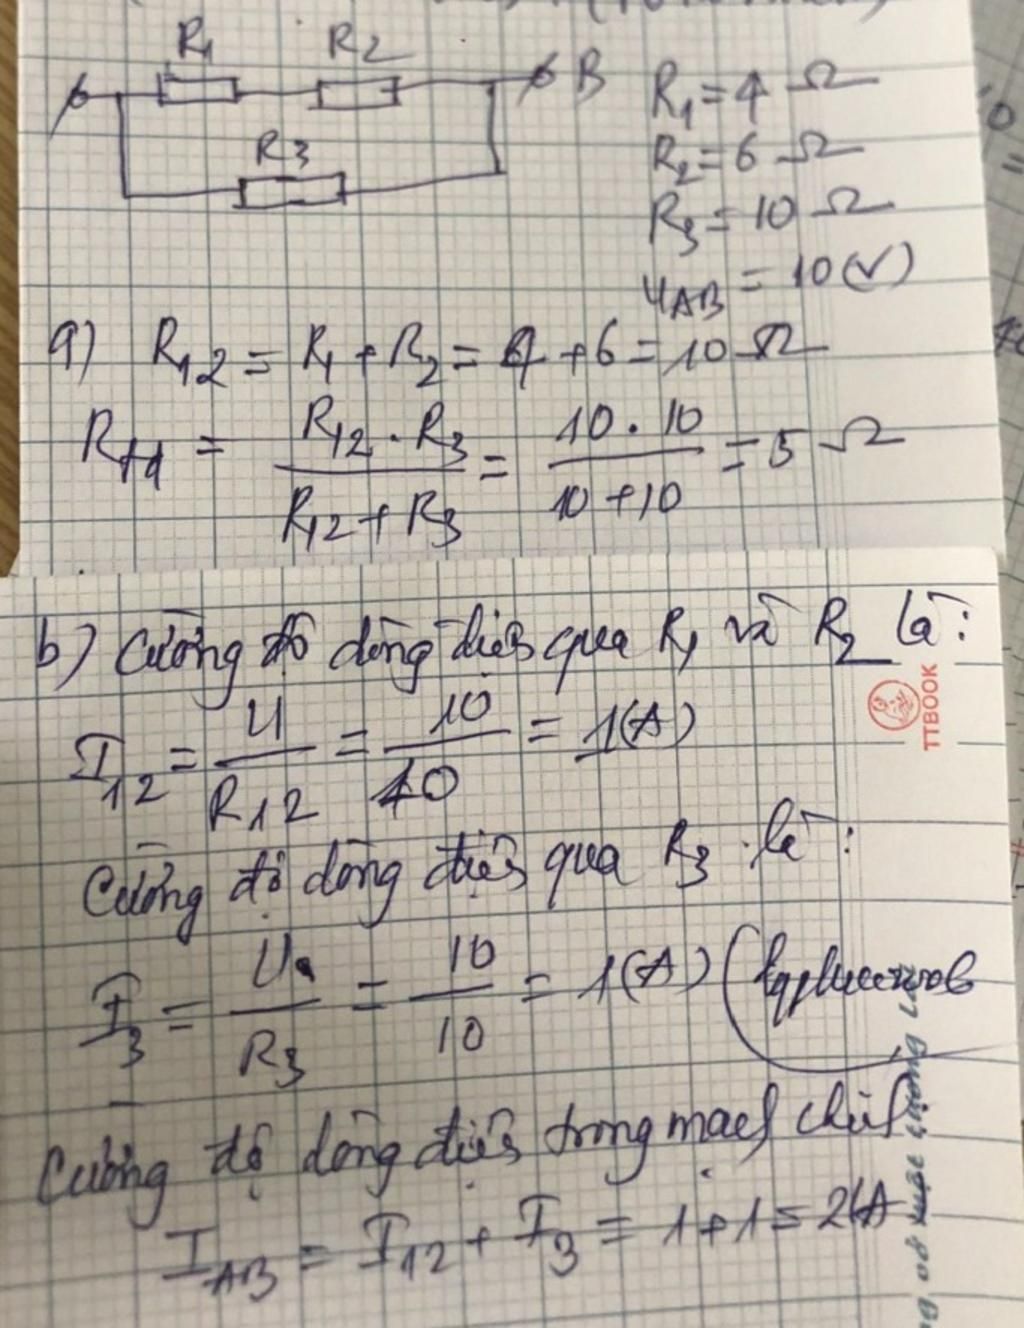 R1 R2
B
R3
R1 = 4 Ω
R2 = 6 Ω
R3 = 10 Ω
UAB = 10 (V)
a) R12 = R1 + R2 = 4 + 6 = 10 Ω
Rtđ = R12 . R3 / R12 + R3 = 10 . 10 / 10 + 10 = 5 Ω
b) Cường độ dòng điện qua R1 và R2 là:
I12 = U / R12 = 10 / 10 = 1 (A)
TTBOOK
Cường độ dòng điện qua R3 là:
I3 = U / R3 = 10 / 10 = 1 (A)
Cường độ dòng điện trong mạch chính
IAB = I12 + I3 = 1 + 1 = 2 (A